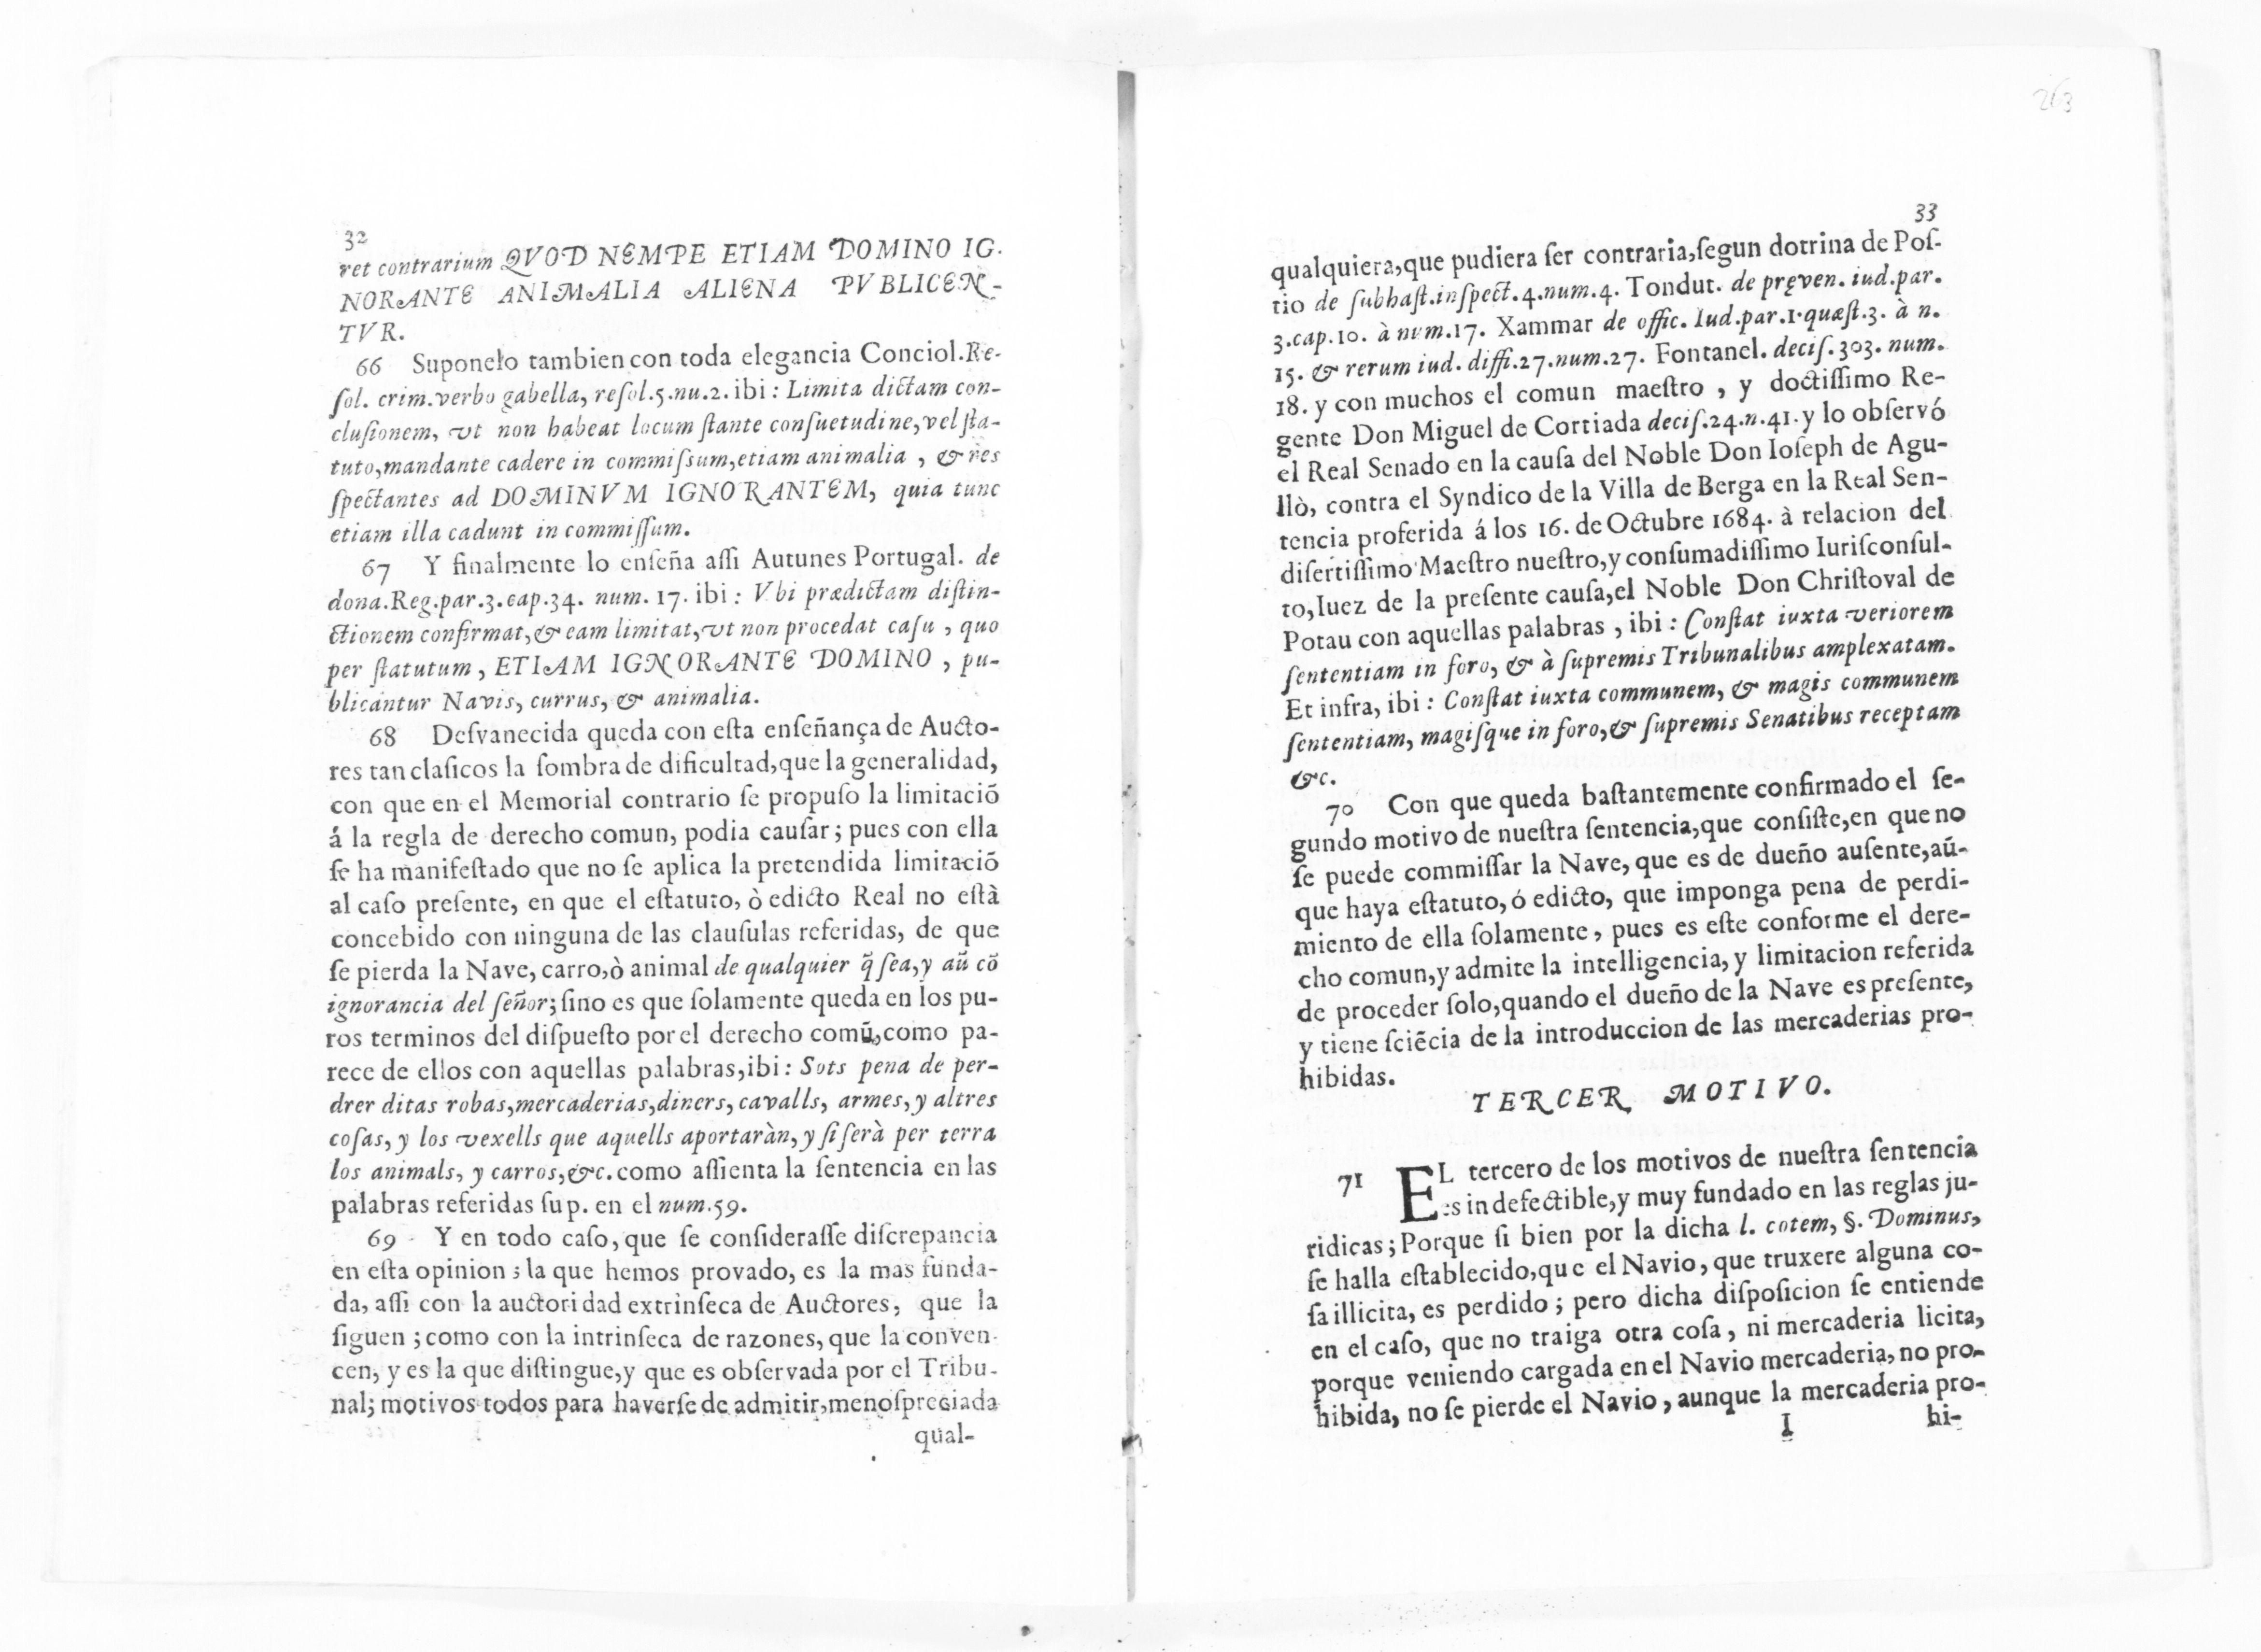 32
ret contrarium QVOD NEMPE ETIAM DOMINO IG-
NORANTE ANIMALIA ALIENA PVBLICEN-
TVR.
66 Suponelo tambien con toda elegancia Conciol. Re-
ſol. crim. verbo gabella, reſol.5.nu.2. ibi : Limita dictam con-
cluſionem, vt non habeat locum ſtante conſuetudine, vel ſta-
tuto, mandante cadere in commiſſum, etiam animalia , & res
ſpectantes ad DOMINVM IGNORANTEM, quia tunc
etiam illa cadunt in commiſſum.
67 Y finalmente lo enſeña aſſi Autunes Portugal. de
dona.Reg.par.3.cap.34. num. 17. ibi : Vbi prædictam diſtin-
ctionem confirmat, & eam limitat, vt non procedat caſu , quo
per ſtatutum , ETIAM IGNORANTE DOMINO , pu-
blicantur Navis, currus, & animalia.
68 Deſvanecida queda con eſta enſeñança de Aucto-
res tan claſicos la ſombra de dificultad, que la generalidad,
con que en el Memorial contrario ſe propuſo la limitaciõ
á la regla de derecho comun, podia cauſar ; pues con ella
ſe ha manifeſtado que no ſe aplica la pretendida limitaciõ
al caſo preſente, en que el eſtatuto, ò edicto Real no eſtà
concebido con ninguna de las clauſulas referidas, de que
ſe pierda la Nave, carro, ò animal de qualquier q̃ ſea, y aũ cõ
ignorancia del ſeñor; ſino es que ſolamente queda en los pu-
ros terminos del diſpueſto por el derecho comũ, como pa-
rece de ellos con aquellas palabras, ibi : Sots pena de per-
drer ditas robas, mercaderias, diners, cavalls, armes, y altres
coſas, y los vexells que aquells aportaràn, y ſi ſerà per terra
los animals, y carros, &c. como aſſienta la ſentencia en las
palabras referidas ſup. en el num.59.
69 Y en todo caſo, que ſe conſideraſſe diſcrepancia
en eſta opinion ; la que hemos provado, es la mas funda-
da, aſſi con la auctoridad extrinſeca de Auctores, que la
ſiguen ; como con la intrinſeca de razones, que la conven-
cen, y es la que diſtingue, y que es obſervada por el Tribu-
nal; motivos todos para haverſe de admitir, menoſpreciada
qual-
263
33
qualquiera, que pudiera ſer contraria, ſegun dotrina de Poſ-
tio de ſubhaſt. inſpect. 4. num. 4. Tondut. de pręven. iud. par.
3.cap.10. à num.17. Xammar de offic. Iud.par.1.quæſt.3. à n.
15. & rerum iud. diffi.27.num.27. Fontanel. deciſ.303. num.
18. y con muchos el comun maeſtro , y doctiſſimo Re-
gente Don Miguel de Cortiada deciſ.24.n.41. y lo obſervó
el Real Senado en la cauſa del Noble Don Ioſeph de Agu-
llò, contra el Syndico de la Villa de Berga en la Real Sen-
tencia proferida á los 16. de Octubre 1684. à relacion del
diſertiſſimo Maeſtro nueſtro, y conſumadiſſimo Iuriſconſul-
to, Iuez de la preſente cauſa, el Noble Don Chriſtoval de
Potau con aquellas palabras , ibi : Conſtat iuxta veriorem
ſententiam in foro, & à ſupremis Tribunalibus amplexatam.
Et infra, ibi : Conſtat iuxta communem, & magis communem
ſententiam, magiſque in foro, & ſupremis Senatibus receptam
&c.
70 Con que queda baſtantemente confirmado el ſe-
gundo motivo de nueſtra ſentencia, que conſiſte, en que no
ſe puede commiſſar la Nave, que es de dueño auſente, aũ-
que haya eſtatuto, ó edicto, que imponga pena de perdi-
miento de ella ſolamente , pues es eſte conforme el dere-
cho comun, y admite la intelligencia, y limitacion referida
de proceder ſolo, quando el dueño de la Nave es preſente,
y tiene ſciẽcia de la introduccion de las mercaderias pro-
hibidas.
TERCER MOTIVO.
71 EL tercero de los motivos de nueſtra ſentencia
es indefectible, y muy fundado en las reglas ju-
ridicas ; Porque ſi bien por la dicha l. cotem, §. Dominus,
ſe halla eſtablecido, que el Navio, que truxere alguna co-
ſa illicita, es perdido ; pero dicha diſpoſicion ſe entiende
en el caſo, que no traiga otra coſa , ni mercaderia licita,
porque veniendo cargada en el Navio mercaderia, no pro-
hibida, no ſe pierde el Navio , aunque la mercaderia pro-
I hi-